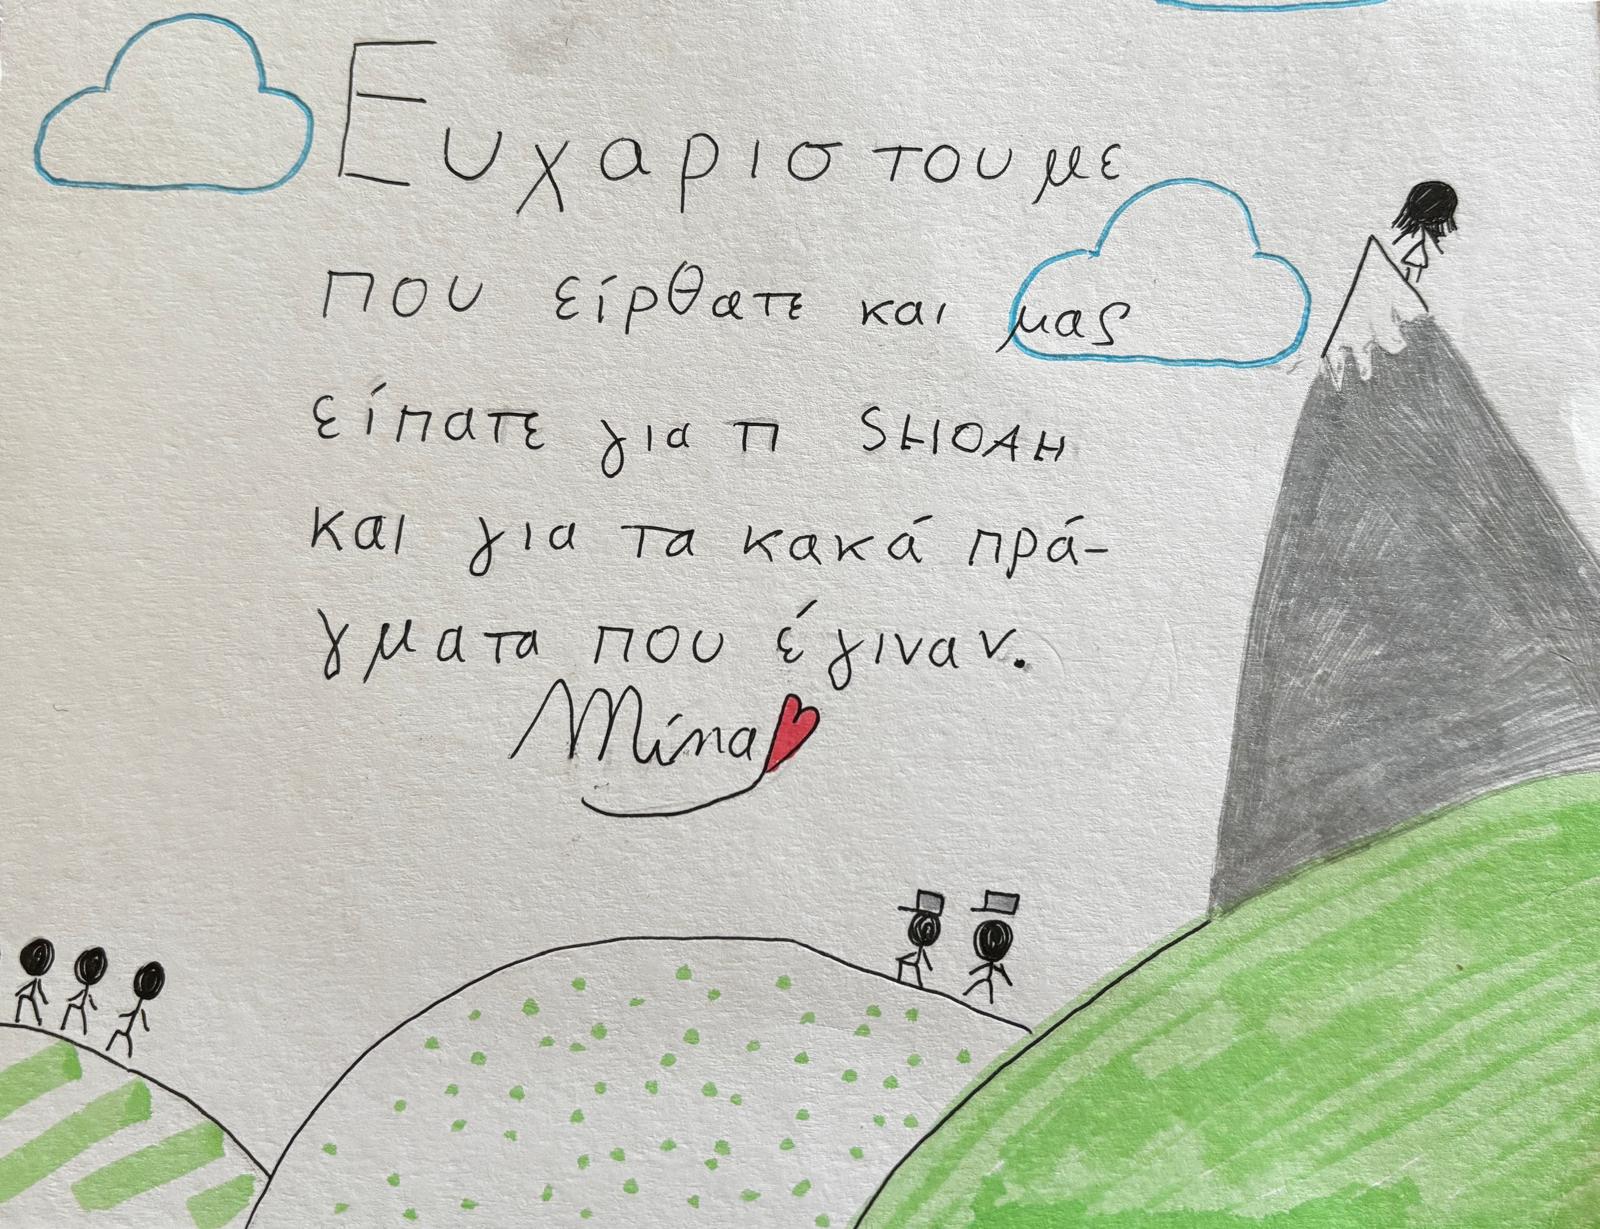 Ευχαριστουμε
που είρθατε και μας
είπατε για τι SHOAH
και για τα κακά πρά-
γματα που έγιναν.
Mína